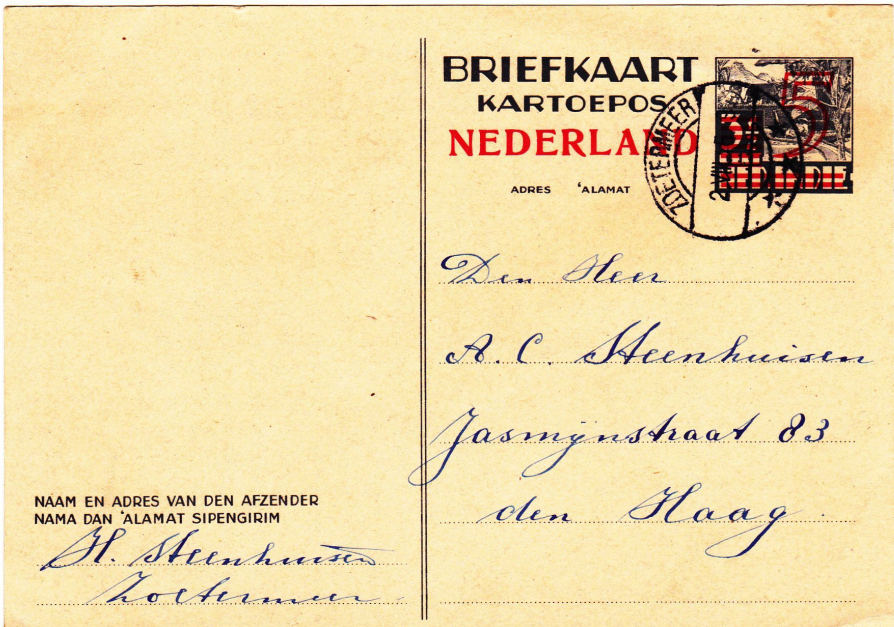 BRIEFKAART
KARTOEPOS
NEDERLAND
5
ZOETERMEER
ADRES 'ALAMAT
Den Heer
A. C. Steenhuisen
Jasmijnstraat 83
den Haag
NAAM EN ADRES VAN DEN AFZENDER
NAMA DAN 'ALAMAT SIPENGIRIM
H. Steenhuisen
Zoetermeer